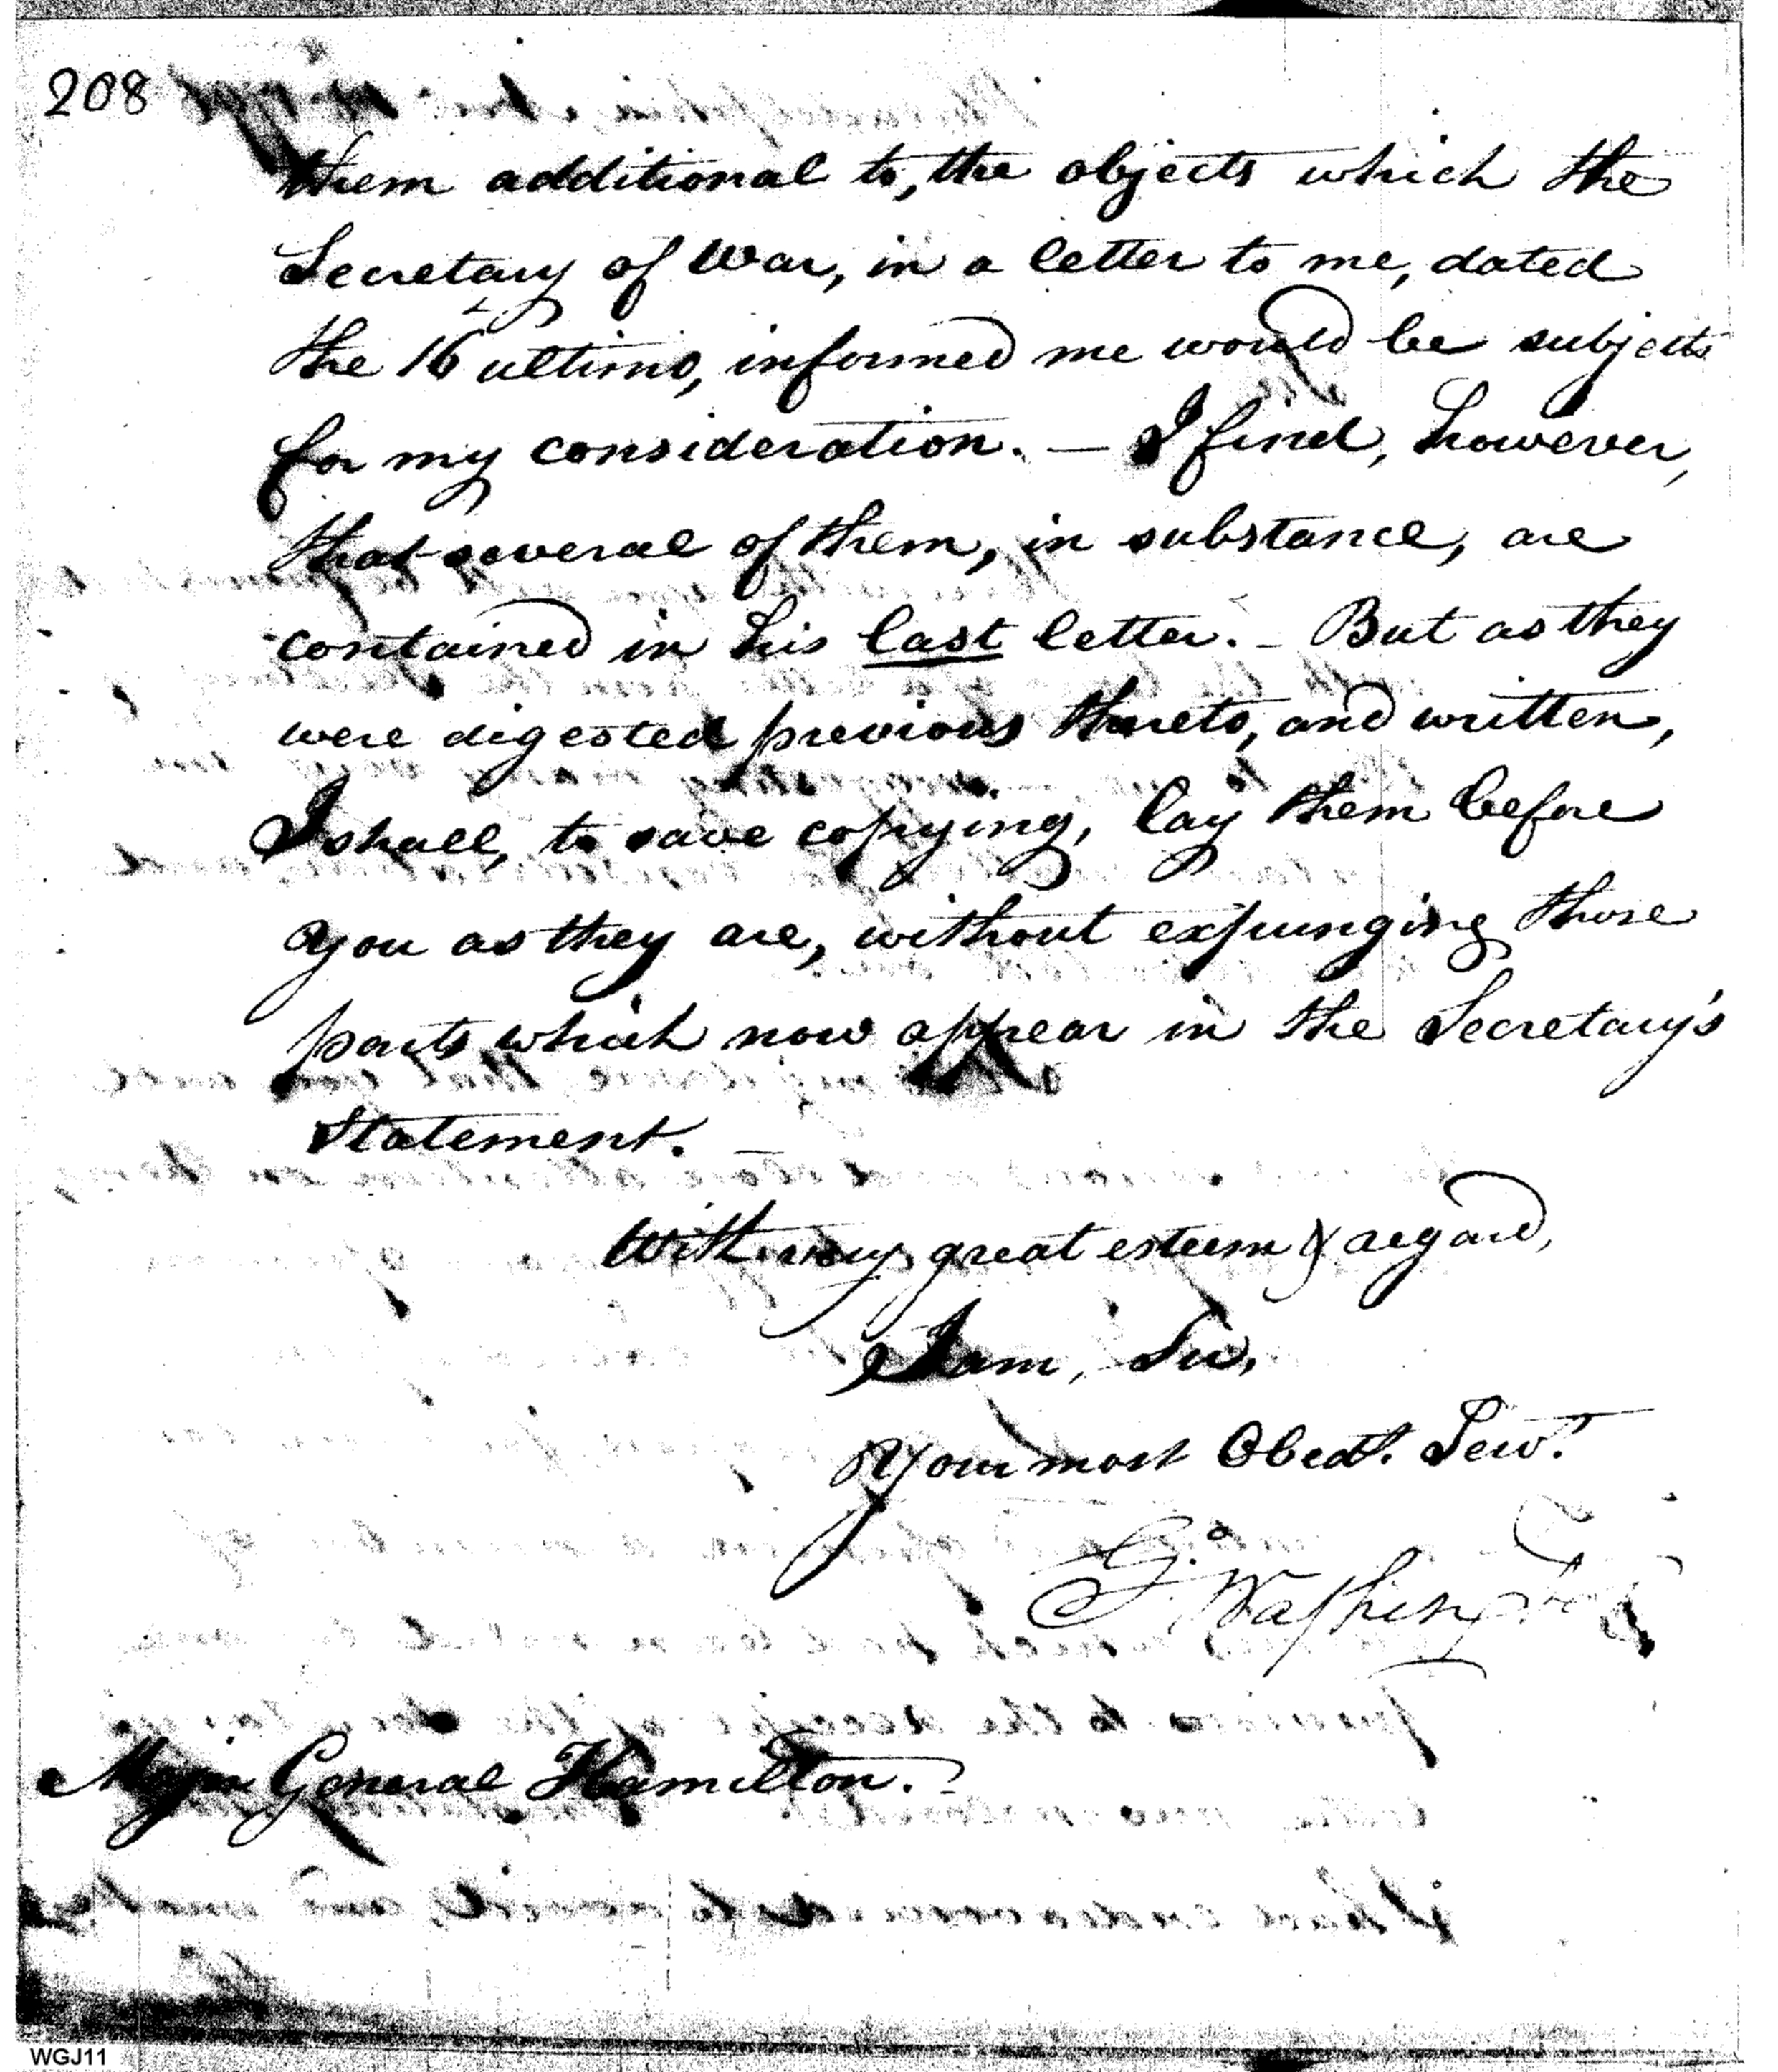 208
them additional to, the objects which the
Secretary of War, in a letter to me, dated
the 16th ultimo, informed me would be subjects
for my consideration. — I find, however,
that several of them, in substance, are
contained in his last letter. — But as they
were digested previous thereto, and written,
I shall, to save copying, lay them before
you as they are, without expunging those
parts which now appear in the Secretary's
Statement. —
With very great esteem & regard,
I am, Sir,
Your most Obedt. Servt.
Go. Washington
Major General Hamilton.
WGJ11